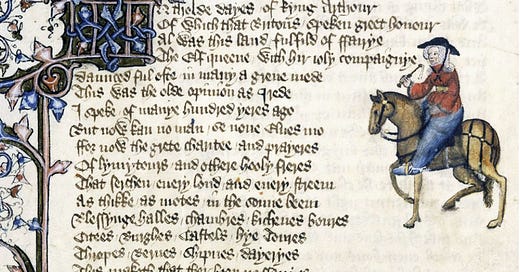 tholde dayes of kyng Arthour
Of which that Britons speken greet honour
Al was this land fulfild of ffairye
The Elf queene with hir ioly compaignye
Daunced ful ofte in many a grene mede
This was the olde opinion as I rede
I speke of manye hundred yeres ago
But now kan no man se none Elues mo
ffor now the grete charitee and prayeres
Of lymytours and othere hooly freres
That serchen euery lond and euery streem
As thikke as motes in the sonne beem
Blessynge halles chambres kichenes boures
Citees Burghes Castels hye Toures
Thropes Bernes Shipnes Dayeryes
This maketh that ther been no